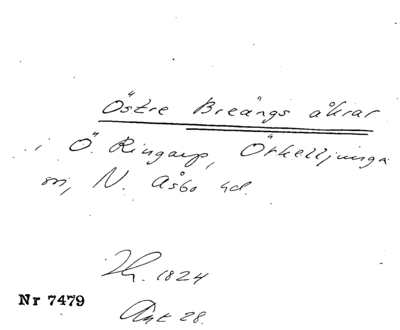 Östre Breängs åkrar
i Ö. Ringarp, Örkelljunga
sn, N. Åsbo hd.
1824
Nr 7479
Akt 28.